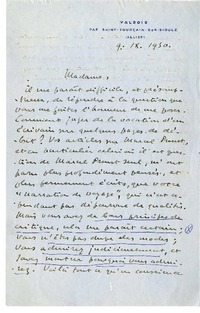 VALBOIS
PAR SAINT-POURÇAIN-SUR-SIOULE
(ALLIER)
9. IX. 1950.
Madame,
il me paraît difficile, et
de répondre à la question que
vous me faites l'honneur de me poser.
Comment juger de la vocation d'un
écrivain sur quelques pages de
début ? Vos articles sur Marcel Proust,
et en particulier celui où il est ques-
tion de Marcel Proust seul, m'ont
paru plus profondément pensés, et
plus fermement écrits, que votre
"narration de voyage", qui n'est ce-
pendant pas dépourvue de qualités.
Mais vous avez de bons principes de
critique, cela me paraît certain ;
vous n'êtes pas dupe des modes ;
vous admirez judicieusement, et
savez montrer pourquoi vous admi-
rez. Voilà tout ce qu'en conscience